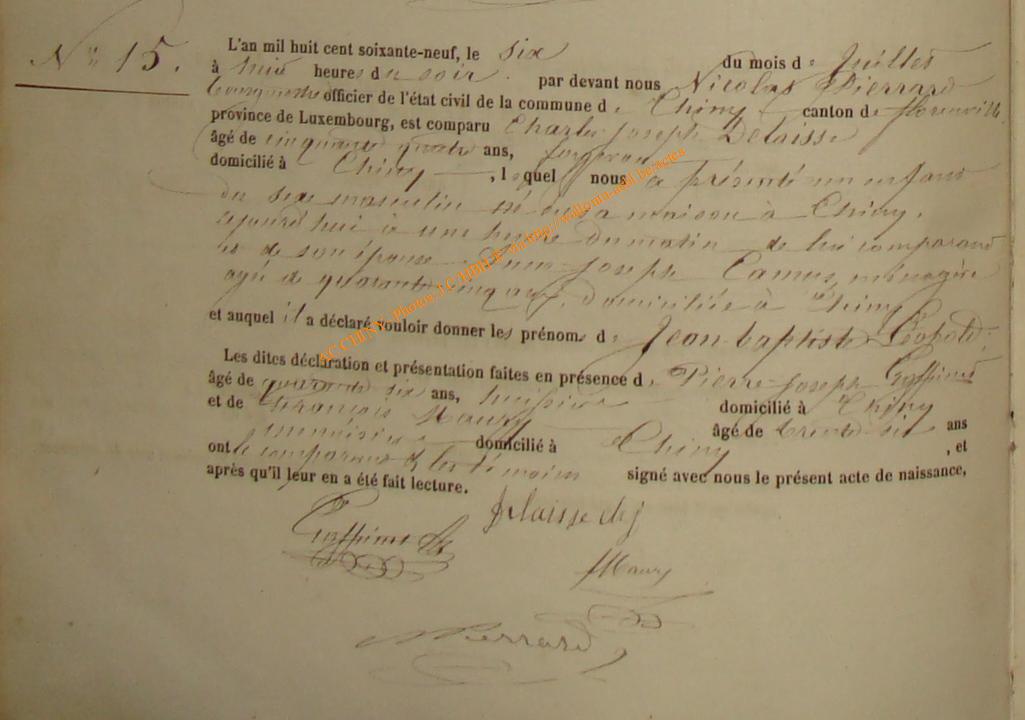 N° 15.
L'an mil huit cent soixante-neuf, le six du mois de Juillet
à huit heures du soir par devant nous Nicolas Pierrard
Bourgmestre officier de l'état civil de la commune de Chiny canton de florenville
province de Luxembourg, est comparu Charles Joseph Delaisse
âgé de cinquante quatre ans, forgeron
domicilié à Chiny, lequel nous a présenté un enfant
du sexe masculin né en sa maison à Chiny,
aujourd'hui à une heure du matin de lui comparant
et de son épouse Joseph Camus, ménagère
agée de quarante cinq ans, domiciliée à Chiny
et auquel il a déclaré vouloir donner les prénoms de Jean-baptiste Léopold.
Les dites déclaration et présentation faites en présence de Pierre Joseph
âgé de quarante six ans, domicilié à Chiny
et de François Maury âgé de trente six ans
domicilié à Chiny, et
ont le comparant & les témoins signé avec nous le présent acte de naissance,
après qu'il leur en a été fait lecture.
Delaisse chj
Maury
NPierrard
AC CHINY- Photos J.C HBHLE via http://wallonia-asbl.be/actes